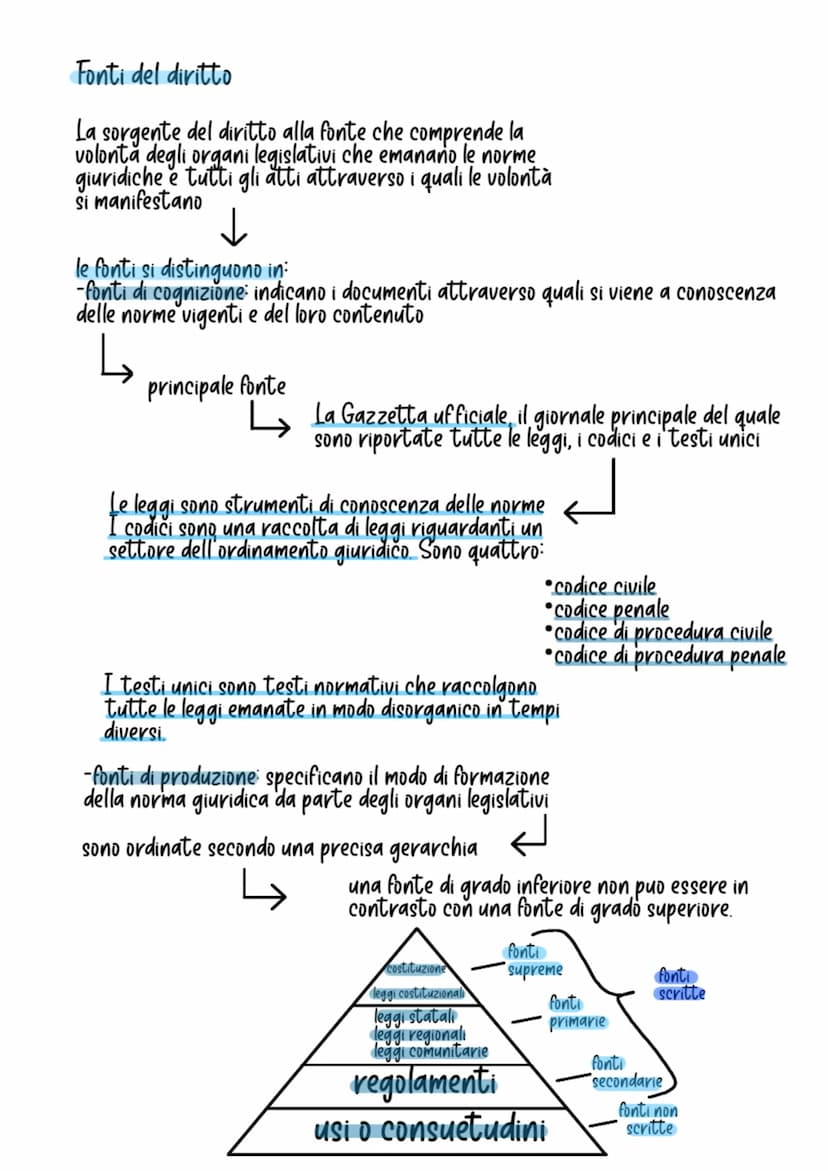 Fonti del diritto
La sorgente del diritto alla fonte che comprende la
volontà degli organi legislativi che emanano le norme
giuridiche e tutti gli atti attraverso i quali le volontà
si manifestano
le fonti si distinguono in:
-fonti di cognizione: indicano i documenti attraverso quali si viene a conoscenza
delle norme vigenti e del loro contenuto
principale fonte
La Gazzetta ufficiale, il giornale principale del quale
sono riportate tutte le leggi, i codici e i testi unici
Le leggi sono strumenti di conoscenza delle norme
I codici sono una raccolta di leggi riguardanti un
settore dell'ordinamento giuridico. Sono quattro:
•codice civile
•codice penale
•codice di procedura civile
•codice di procedura penale
I testi unici sono testi normativi che raccolgono
tutte le leggi emanate in modo disorganico in tempi
diversi.
-fonti di produzione: specificano il modo di formazione
della norma giuridica da parte degli organi legislativi
sono ordinate secondo una precisa gerarchia
una fonte di grado inferiore non puo essere in
contrasto con una fonte di grado superiore.
costituzione
leggi costituzionali
fonti
supreme
fonti
scritte
leggi statali
leggi regionali
leggi comunitarie
fonti
primarie
regolamenti
fonti
secondarie
usi o consuetudini
fonti non
scritte